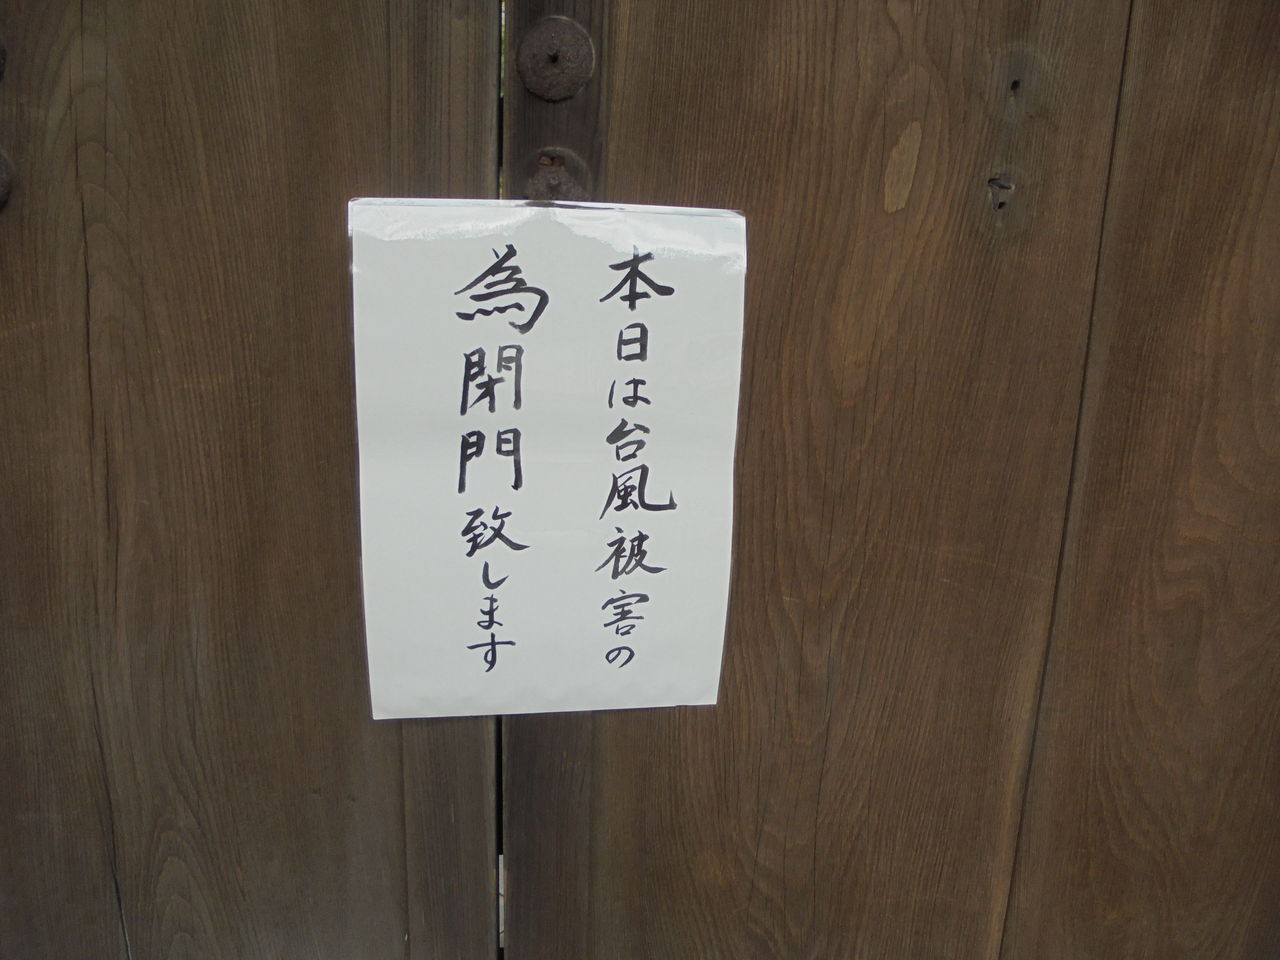 本日は台風被害の
為閉門致します